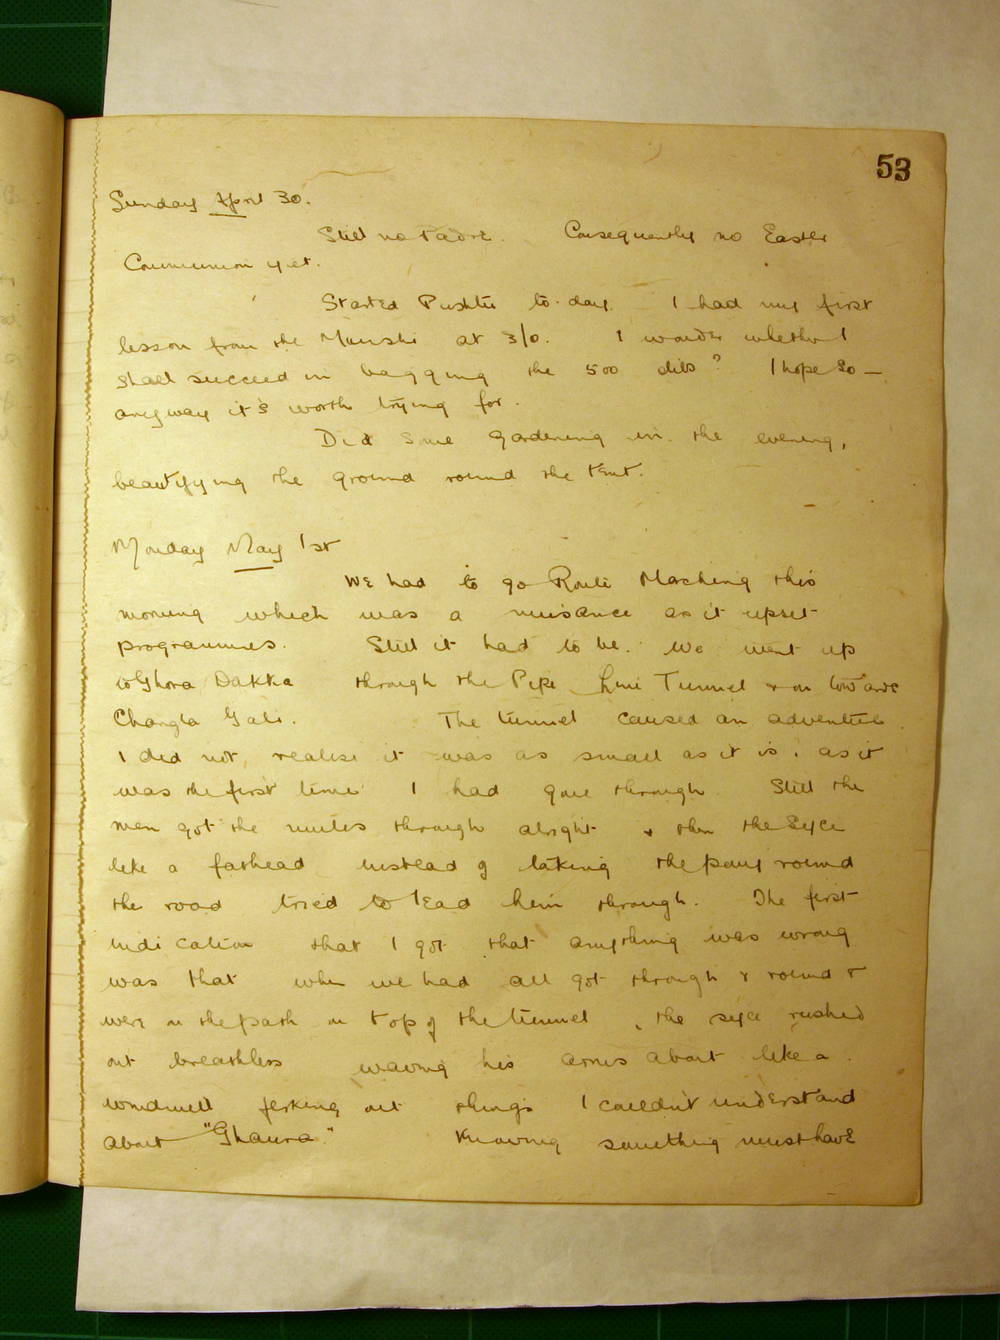 53
Sunday April 30.
Still no Padre. Consequently no Easter
Communion yet.
Started Pushtu to-day. I had my first
lesson from the Munshi at 3/0. I wonder whether I
shall succeed in bagging the 500 dibs? I hope so —
anyway it's worth trying for.
Did some gardening in the evening,
beautifying the ground round the tent.
Monday May 1st
We had to go Route Marching this
morning which was a nuisance as it upset
programmes. Still it had to be. We went up
to Ghora Dakka through the Pipe Line Tunnel & on towards
Changla Gali. The tunnel caused an adventure.
I did not realise it was as small as it is, as it
was the first time I had gone through. Still the
men got the mules through alright & then the Syce
like a fathead instead of taking the pony round
the road tried to lead him through. The first
indication that I got that anything was wrong
was that when we had all got through & round &
were on the path on top of the tunnel, the syce rushed
out breathless waving his arms about like a
windmill jerking out things I couldn't understand
about "Ghaura." Knowing something must have